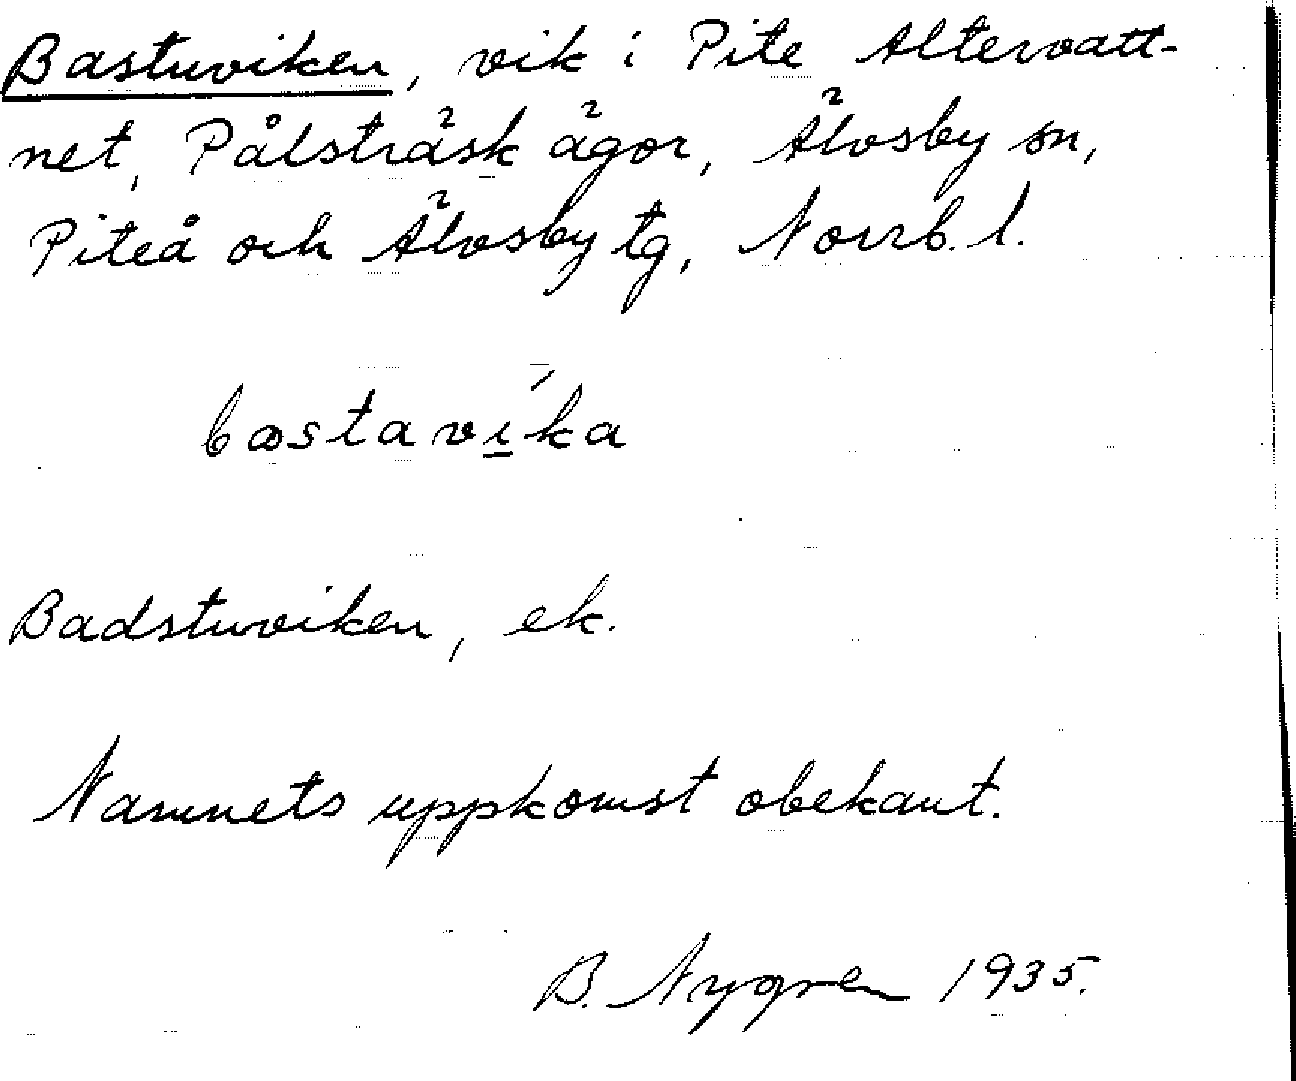 Bastuviken, vik i Pite Altervatt-
net, Pålsträsk ägor, Älvsby sn,
Piteå och Älvsby tg, Norrb. l.
bastaví̲ka
Badstuviken, ek.
Namnets uppkomst obekant.
B. Nygren 1935.